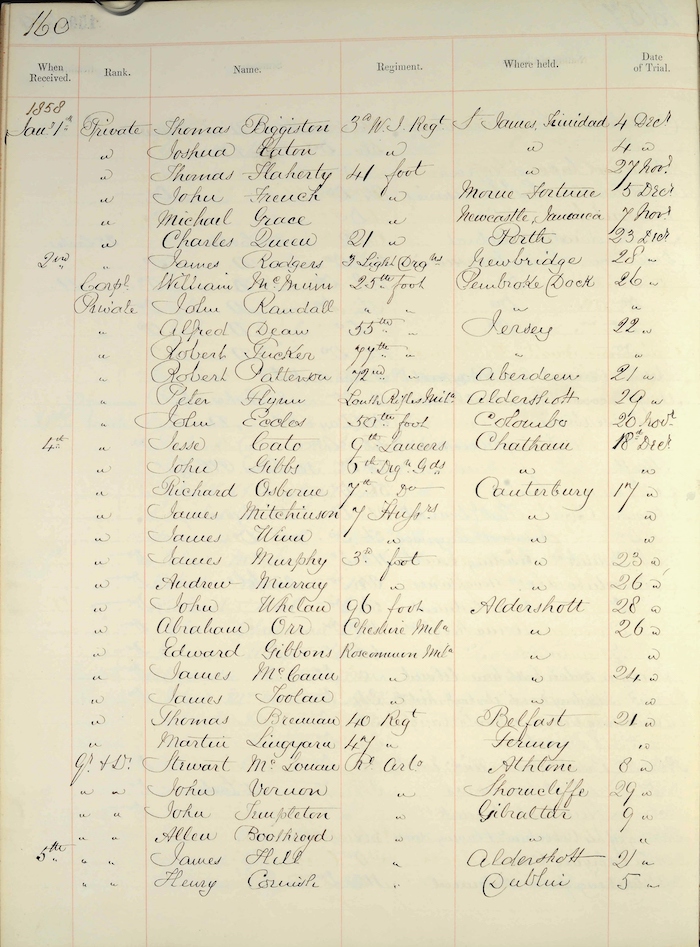 160
When Received. Rank. Name. Regiment. Where held. Date of Trial.
1858
Jany 1st Private Thomas Biggiston 3d W. I. Regt St James, Trinidad 4 Decr
" Joshua Eaton " " 4 "
" Thomas Flaherty 41 foot " 27 Novr
" John French " Morne Fortune 5 Decr
" Michael Grace " Newcastle, Jamaica 7 Novr
" Charles Queen 21 " Perth 23 Decr
2nd " James Rodgers 3 Light Drgns Newbridge 28 "
Corpl. William 25th foot Pembroke Dock 26 "
Private John Randall " " " "
" Alfred Dean 55th " Jersey 22 "
" Robert Tucker 77th " " "
" Robert Patterson 72nd " Aberdeen 21 "
" Peter Flynn South Rifles Mila Aldershott 29 "
" John Eccles 50th foot Colombo 20 Novr
4th " Jesse Cato 9th Lancers Chatham 18th Decr
" John Gibbs 6th Drgn Gds " "
" Richard Osborne 7th Do Canterbury 17 "
" James Mitchinson 7 Hussrs " "
" James Winn " " "
" James Murphy 3rd foot " 23 "
" Andrew Murray " " 26 "
" John Whelan 96 foot Aldershott 28 "
" Abraham Orr Cheshire Mila " 26 "
" Edward Gibbons Roscommon Mila " "
" James McCann " " 24 "
" James Toolan " " "
" Thomas Brennan 40 Regt Belfast 21 "
" Martin 47 " Fermoy "
Gr & Dr Stewart Rl Arty Athlone 8 "
" " John Vernon " Shorncliffe 29 "
" " John Templeton " Gibraltar 9 "
" " Allen Boothroyd " " "
5th " " James Hill " Aldershott 21 "
" " Henry Cornish " Dublin 5 "